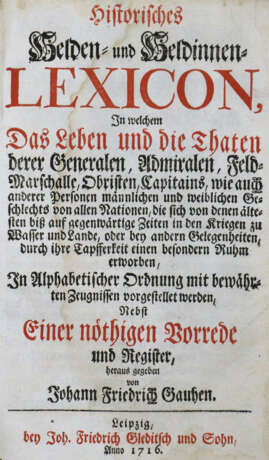 Historisches
Helden- und Heldinnen-
LEXICON,
In welchem
Das Leben und die Thaten
derer Generalen, Admiralen, Feld-
Marschalle, Obristen, Capitains, wie auch
anderer Personen männlichen und weiblichen Ge-
schlechts von allen Nationen, die sich von denen älte-
sten biß auf gegenwärtige Zeiten in den Kriegen zu
Wasser und Lande, oder bey andern Gelegenheiten,
durch ihre Tapfferkeit einen besondern Ruhm
erworben,
In Alphabetischer Ordnung mit bewähr-
ten Zeugnissen vorgestellet werden,
Nebst
Einer nöthigen Vorrede
und Register,
heraus gegeben
von
Johann Friedrich Gauhen.
Leipzig,
bey Joh. Friedrich Gleditsch und Sohn,
Anno 1716.